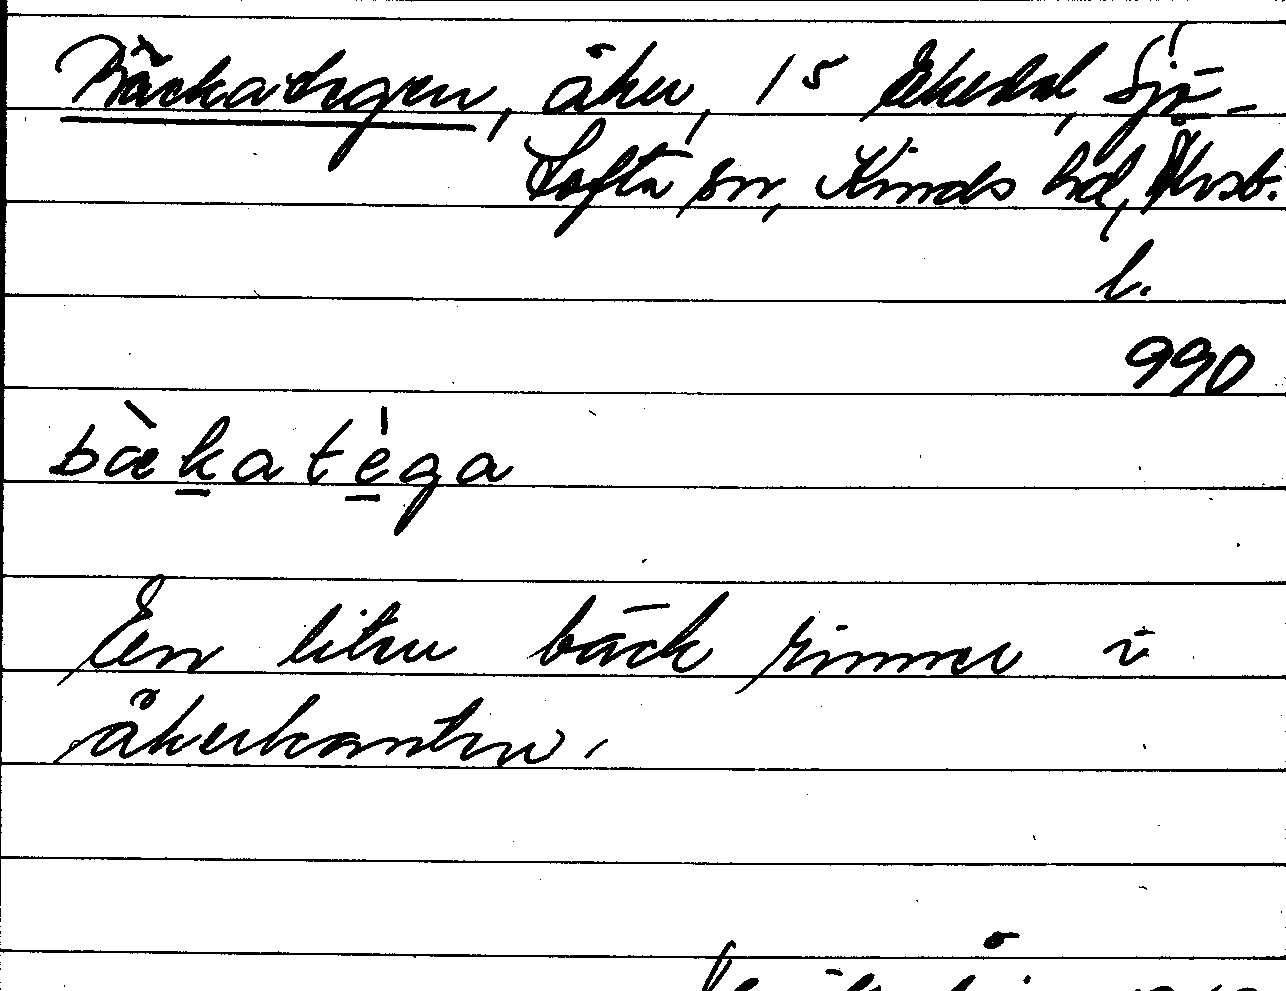 Bäckategen, åker, 15 Ekedal, Sjö-
tofta sn, Kinds hd, Älvsb.
l.
990
bæ̀katéga
En liten bäck rinner i
åkerkanten.